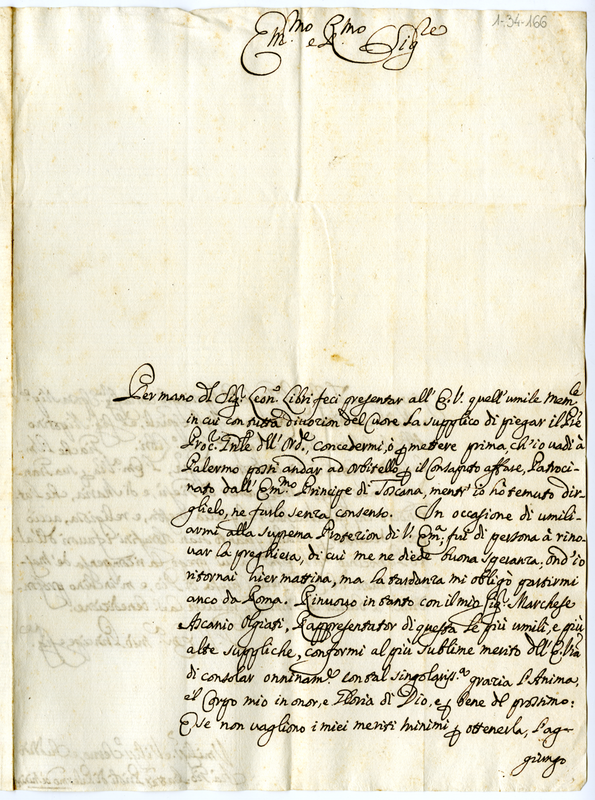 1-34-166
Em.mo e R.mo Sig.re
Per mano del Sig.r Leon.o Libri feci presentar all' E. V. quell' umile Mem.le
in cui con tutta divozion del Cuore la supplico di piegar il P.re
Proc.r Gn'le dell' Ord.e, concedermi, ò permettere prima, ch' io vadi à
Palermo possi andar ad Orbitello per il consaputo affare, Patroci-
nato dall' Em.mo Principe di Toscana, mentr' io hò temuto dir-
glielo, ne farlo senza consenso. In occasione di umili-
armi alla suprema Protezion di V. Em.a fui di persona à rino-
var la preghiera, di cui me ne diede buona speranza, ond' io
ritornai hier mattina, ma la tardanza mi obligò partirmi
anco da Roma. Rinuovo in tanto con il mio Sig.r Marchese
Ascanio Olgiati, Rappresentator di questa le più umili, e più
alte suppliche, conformi al più sublime merito dell' E. V'ra
di consolar onninam.e con tal singolariss.a grazia l'Anima,
e'l Corpo mio in onor, e Gloria di Dio, e per bene del prossimo:
E se non vagliono i miei meriti minimi per ottenerla, l'ag-
giungo